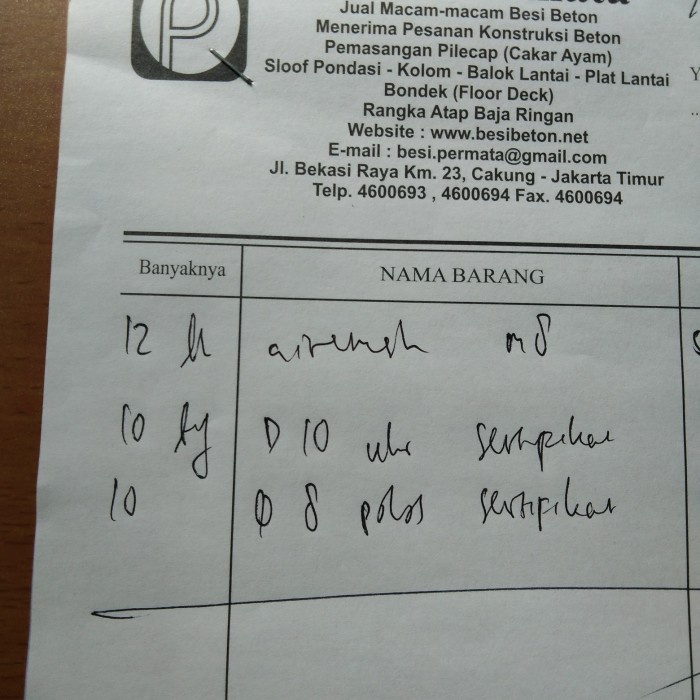 Jual Macam-macam Besi Beton
Menerima Pesanan Konstruksi Beton
Pemasangan Pilecap (Cakar Ayam)
Sloof Pondasi - Kolom - Balok Lantai - Plat Lantai
Bondek (Floor Deck)
Rangka Atap Baja Ringan
Website : www.besibeton.net
E-mail : besi.permata@gmail.com
Jl. Bekasi Raya Km. 23, Cakung - Jakarta Timur
Telp. 4600693 , 4600694 Fax. 4600694
Banyaknya NAMA BARANG
12 m8
10 D 10 sertifikat
10 Ø 8 polos sertifikat